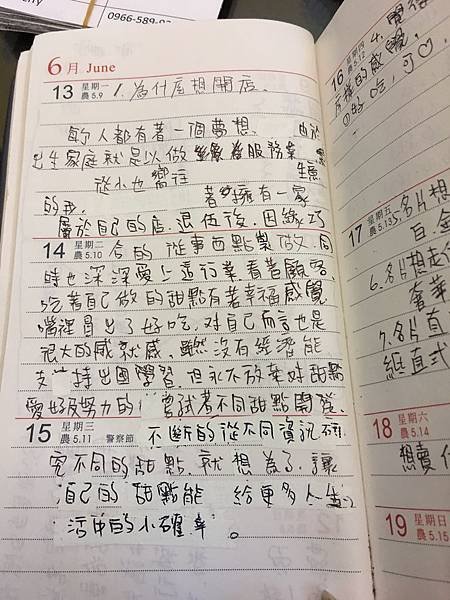 0966-589-0
6月 June
13 星期一 農5.9 1.為什麼想開店。
每個人都有著一個夢想. 由於
出生家庭就是以做 服務業
生意
從小也嚮往 著擁有一家
的我.
屬於自己的店.退伍後.因緣巧
14 星期二 農5.10 合的 從事西點製做.同
時也深深愛上這行業看著顧客
吃著自己做的甜點有著幸福感覺
嘴裡冒出了好吃.對自己而言也是
很大的感就感.雖然沒有經濟能
支持出國學習.但永不放棄對甜點
愛好及努力的 嘗試著不同甜點開發.
15 星期三 農5.11 警察節 不斷的從不同資訊研
究不同的甜點.就想為了.讓
自己的 甜點能 給更多人生
活中的小確幸。
16 星期四 農5.12 4.
感覺.
好吃.可
17 星期五 農5.13 5.名片想
白金
6.名片想走
奢華
7.名片直
紙直式
18 星期六 農5.14
想賣
19 星期日 農5.15
12